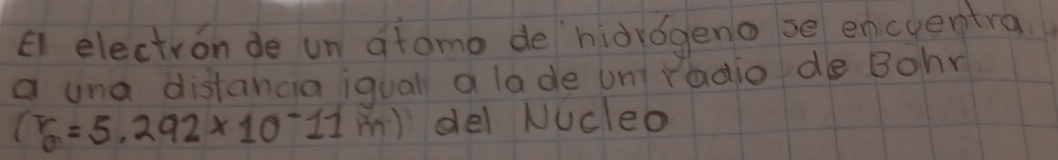 El electrón de un átomo de hidrógeno se encuentra
a una distancia igual a la de un radio de Bohr
(r₀=5.292×10⁻¹¹ m) del Nucleo